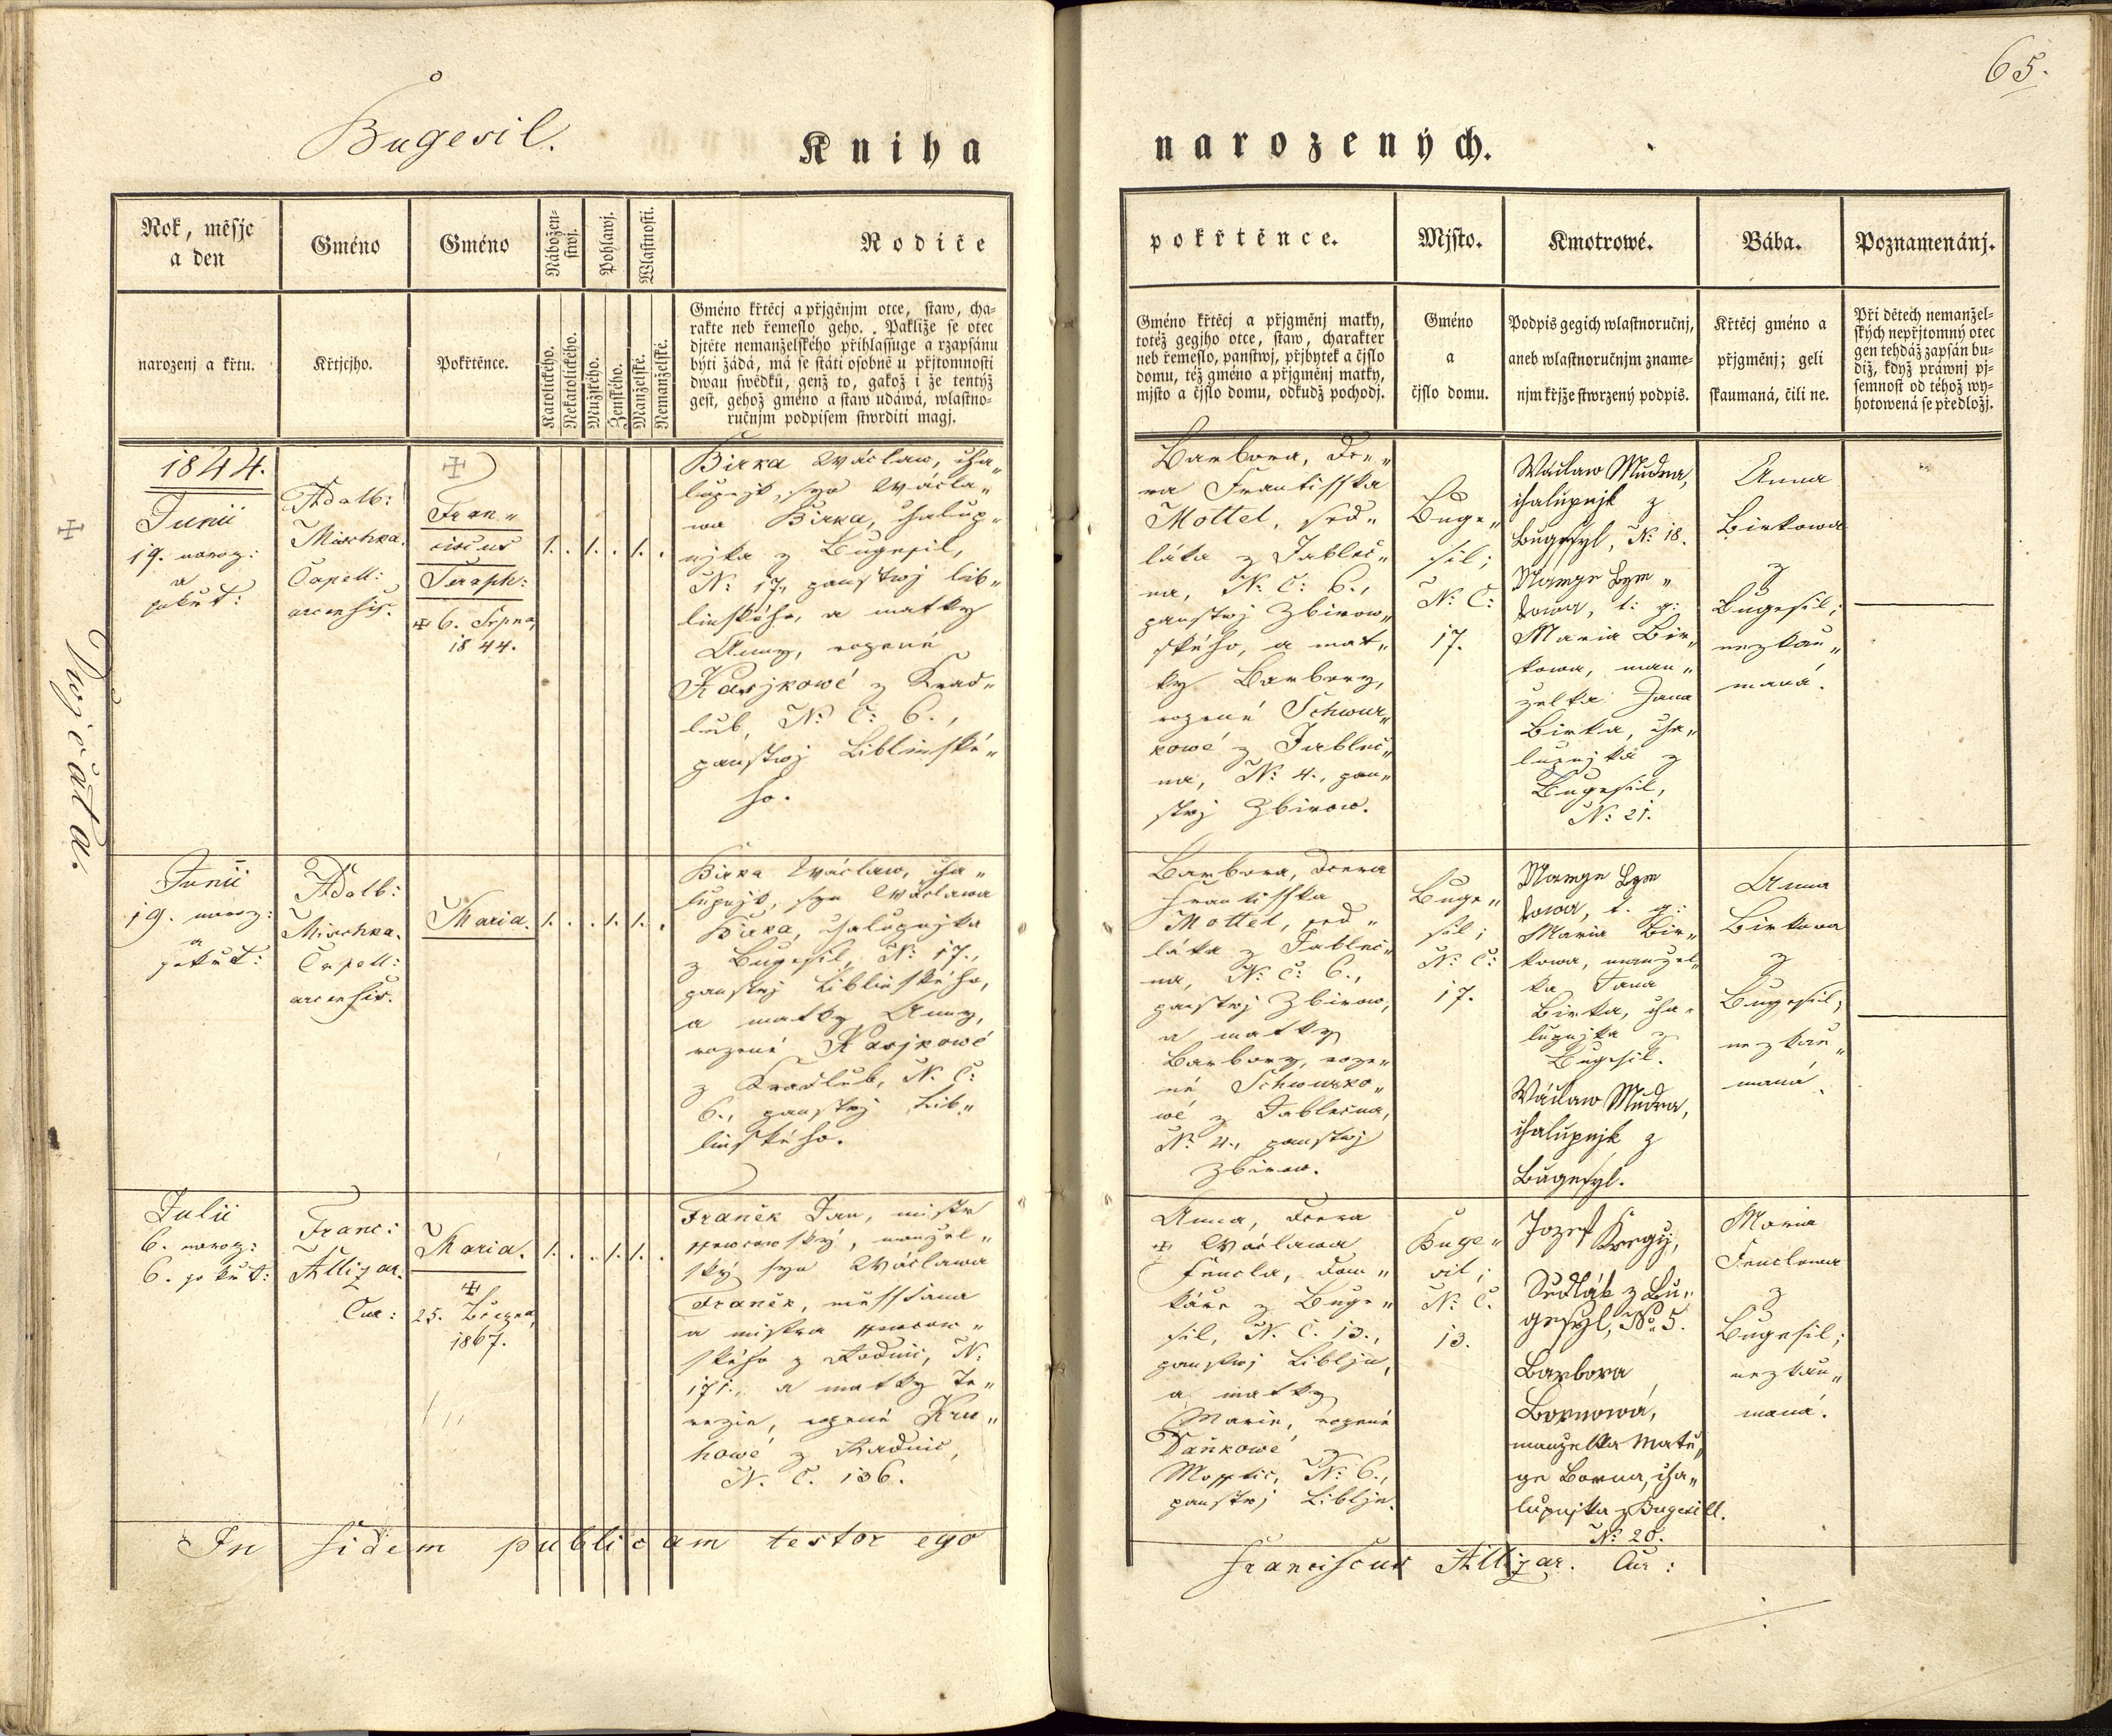 65.
Bugesil.
Kniha
narozených.
Rok, měsjc
a den
narozenj a křtu.
Gméno
Křtjcjho.
Gméno
Pokřtěnce.
Nábožen-
stwj.
Katolického.
Nekatolického.
Pohlawj.
Mužského.
Ženského.
Wlastnosti.
Manželské.
Nemanželské.
Rodiče
Gméno křtěcj a přjgěnjm otce, staw, cha-
rakte neb řemeslo geho. Pakliže se otec
djtěte nemanželského přihlassuge a rzapsánu
býti žádá, má se státi osobně u přjtomnosti
dwau swědků, genž to, gakož i že tentýž
gest, gehož gméno a staw udáwá, wlastno-
ručnjm podpisem stwrditi magj.
pokřtěnce.
Gméno křtěcj a přjgměnj matky,
totéž gegjho otce, staw, charakter
neb řemeslo, panstwj, přjbytek a čjslo
domu, též gméno a přjgměnj matky,
mjsto a čjslo domu, odkudž pochodj.
Mjsto.
Gméno
a
čjslo domu.
Kmotrowé.
Podpis gegich wlastnoručnj,
aneb wlastnoručnjm zname-
njm křjže stwrzený podpis.
Bába.
Křtěcj gméno a
přjgměnj; geli
skaumaná, čili ne.
Poznamenánj.
Při dětech nemanžel-
ských nepřjtomný otec
gen tehdáž zapsán bu-
diž, když práwnj pj-
semnost od téhož wy-
hotowená se předložj.
Dwojčata.
1844.
Junii
19. naroz:
a
pokřt:
Adalb:
Mischka.
Capell:
arcensis.
Fran„
ciscus
Seraph:
6. Srpna,
1844.
1. . 1. . 1. .
Birka Wáclaw, cha„
lupnjk, syn Wácla„
wa Birka, chalup„
njka z Bugesil,
N: 17., panstwj Lib„
linského, a matky
Anny, rozené
Kasjkowé z Krad„
lub, N: C: 6.,
panstwj Liblinské„
ho.
Barbora, Dce„
ra Frantisska
Mottel, sed„
láka z Jableč„
na, N: C: 6.,
panstwj Zbirow„
ského, a mat„
ky Barbory,
rozené Schwur„
kowé z Jableč„
na, N: 4., pan„
stwj Zbirow.
Buge„
sil;
N: C:
17.
Wáclaw Mudra,
chalupnjk z
Bugesyl, N: 18.
Maria Bir„
kowa, man„
želka Jana
Birka, cha„
lupnjka z
Bugesil,
N: 21.
Anna
Birkowa
z
Bugesil;
nezkau„
maná.
Junii
19. naroz:
a
pokřt:
Adalb:
Mischka.
Capell:
arcensis.
Maria.
1. . . 1. 1. .
Birka Wáclaw, cha„
lupnjk, syn Wáclawa
Birka, chalupnjka
z Bugesil, N: 17.,
panstwj Liblinského,
a matky Anny,
rozené Kasjkowé
z Kradlub, N. C:
6., panstwj Lib„
linského.
Barbora, Dcera
Frantisska
Mottel, sed„
láka z Jableč„
na, N: C: 6.,
panstwj Zbirow,
a matky
Barbory, roze„
né Schwurko„
wé z Jablečna,
N: 4., panstwj
Zbirow.
Buge„
sil;
N: C:
17.
Maria Bir„
kowa, manžel„
ka Jana
Birka, cha„
lupnjka z
Bugesil.
Wáclaw Mudra,
chalupnjk z
Bugesyl.
Anna
Birkowa
z
Bugesil;
nezkau„
maná.
Julii
6. naroz:
6. pokřt:
Franc:
Allizar.
Cur:
Maria.
25. Března,
1867.
1. . . 1. 1. .
Franěk Jan, mistr
ssewcowský, manžel„
ský syn Wáclawa
Franěk, měsstana
a mistra ssewcow„
ského z Radnic, N:
171., a matky Te„
rezie, rozené Kru„
howé z Radnic,
N. C. 136.
Anna, Dcera
Wáclawa
Fencla, dom„
káře z Buge„
sil, N. C. 13.,
panstwj Libljn,
a matky
Marie, rozené
Daňkowé z
Mosstic, N: 6.,
panstwj Libljn.
Buge„
sil;
N: C.
13.
Jozef Kregy,
Sedlák z Bu„
gesyl, No. 5.
Barbora
Bornowá,
manzelka Matě„
ge Borna, cha„
lupnjka z Bugesill.
N: 20.
Maria
Fenclowa
z
Bugesil;
nezkau„
maná.
In fidem publicam testor ego
Franciscus Allizar. Cur: